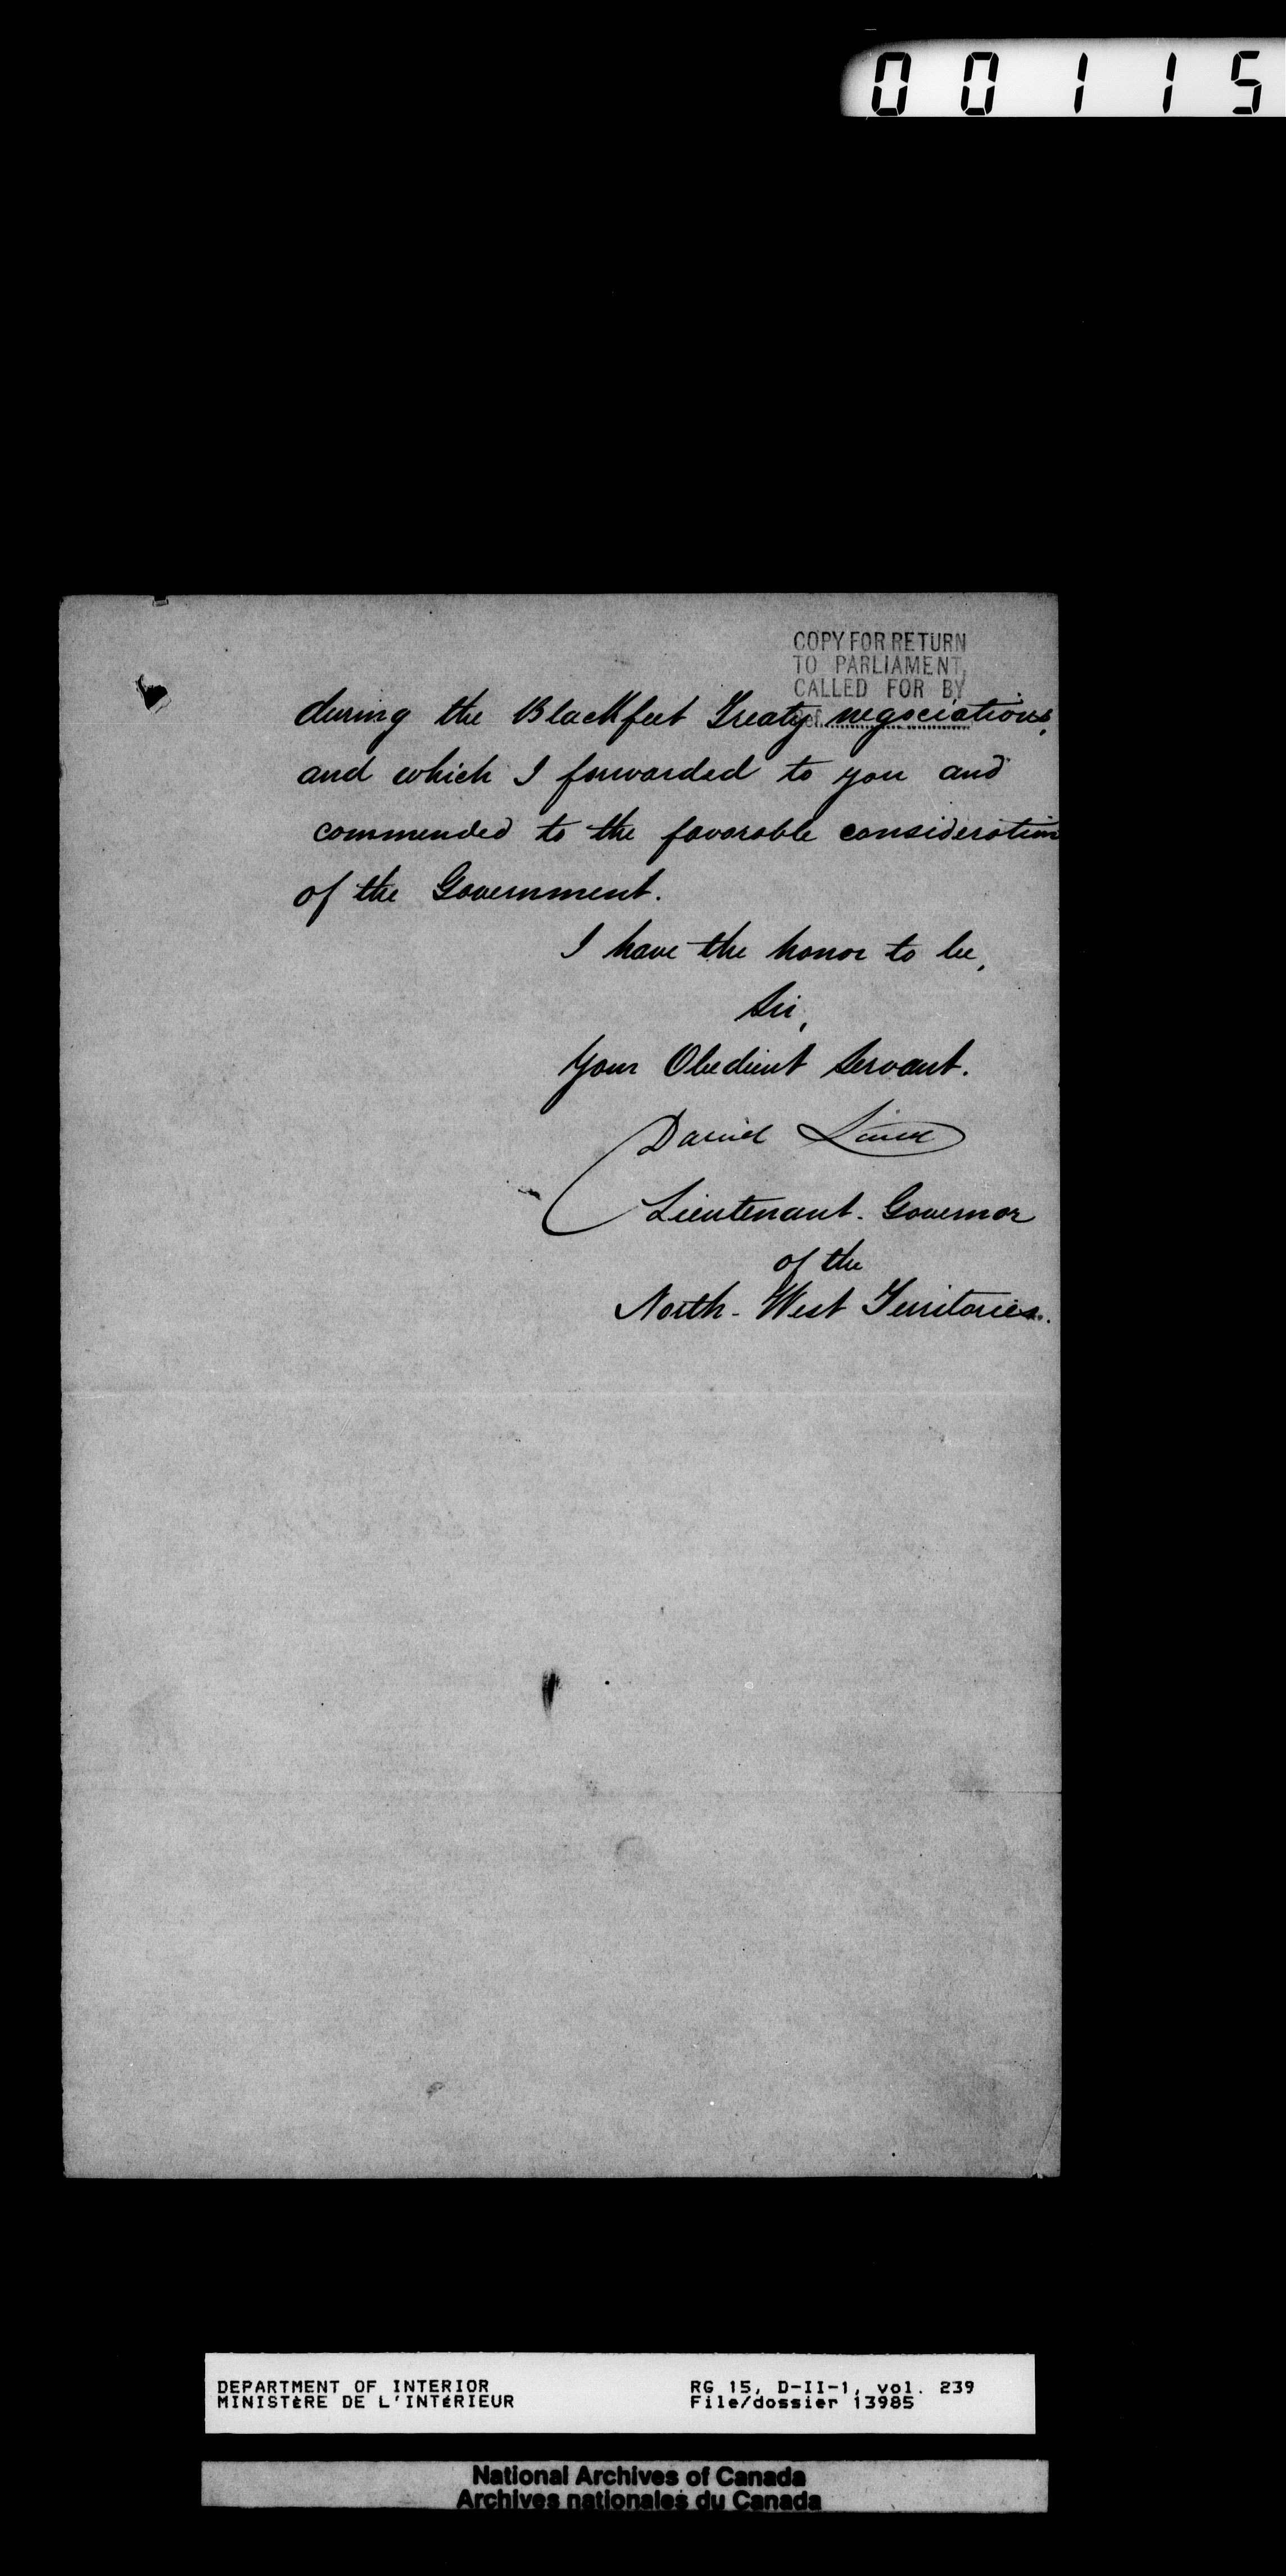 00115
COPY FOR RETURN
TO PARLIAMENT,
CALLED FOR BY
Ref.
during the Blackfeet Treaty negociations,
and which I forwarded to you and
commended to the favorable consideration
of the Government.
I have the honor to be,
Sir,
Your Obedient Servant.
David Laird
Lieutenant-Governor
of the
North-West Territories.
DEPARTMENT OF INTERIOR
MINISTÈRE DE L'INTÉRIEUR
RG 15, D-II-1, vol. 239
File/dossier 13985
National Archives of Canada
Archives nationales du Canada